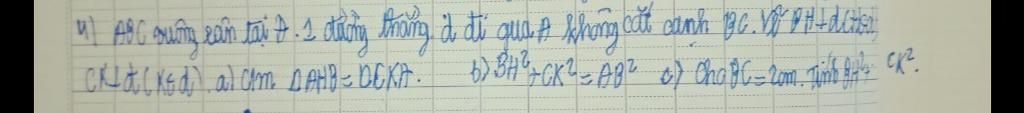 4) ABC vuông cân tại A. 1 đường thẳng d đi qua A không cắt cạnh BC. Vẽ BH⊥d(H∈d)
CK⊥d(K∈d). a) C/m ΔAHB=ΔCKA. b) BH²+CK²=AB² c) Cho BC=2cm. Tính BH²+ CK².